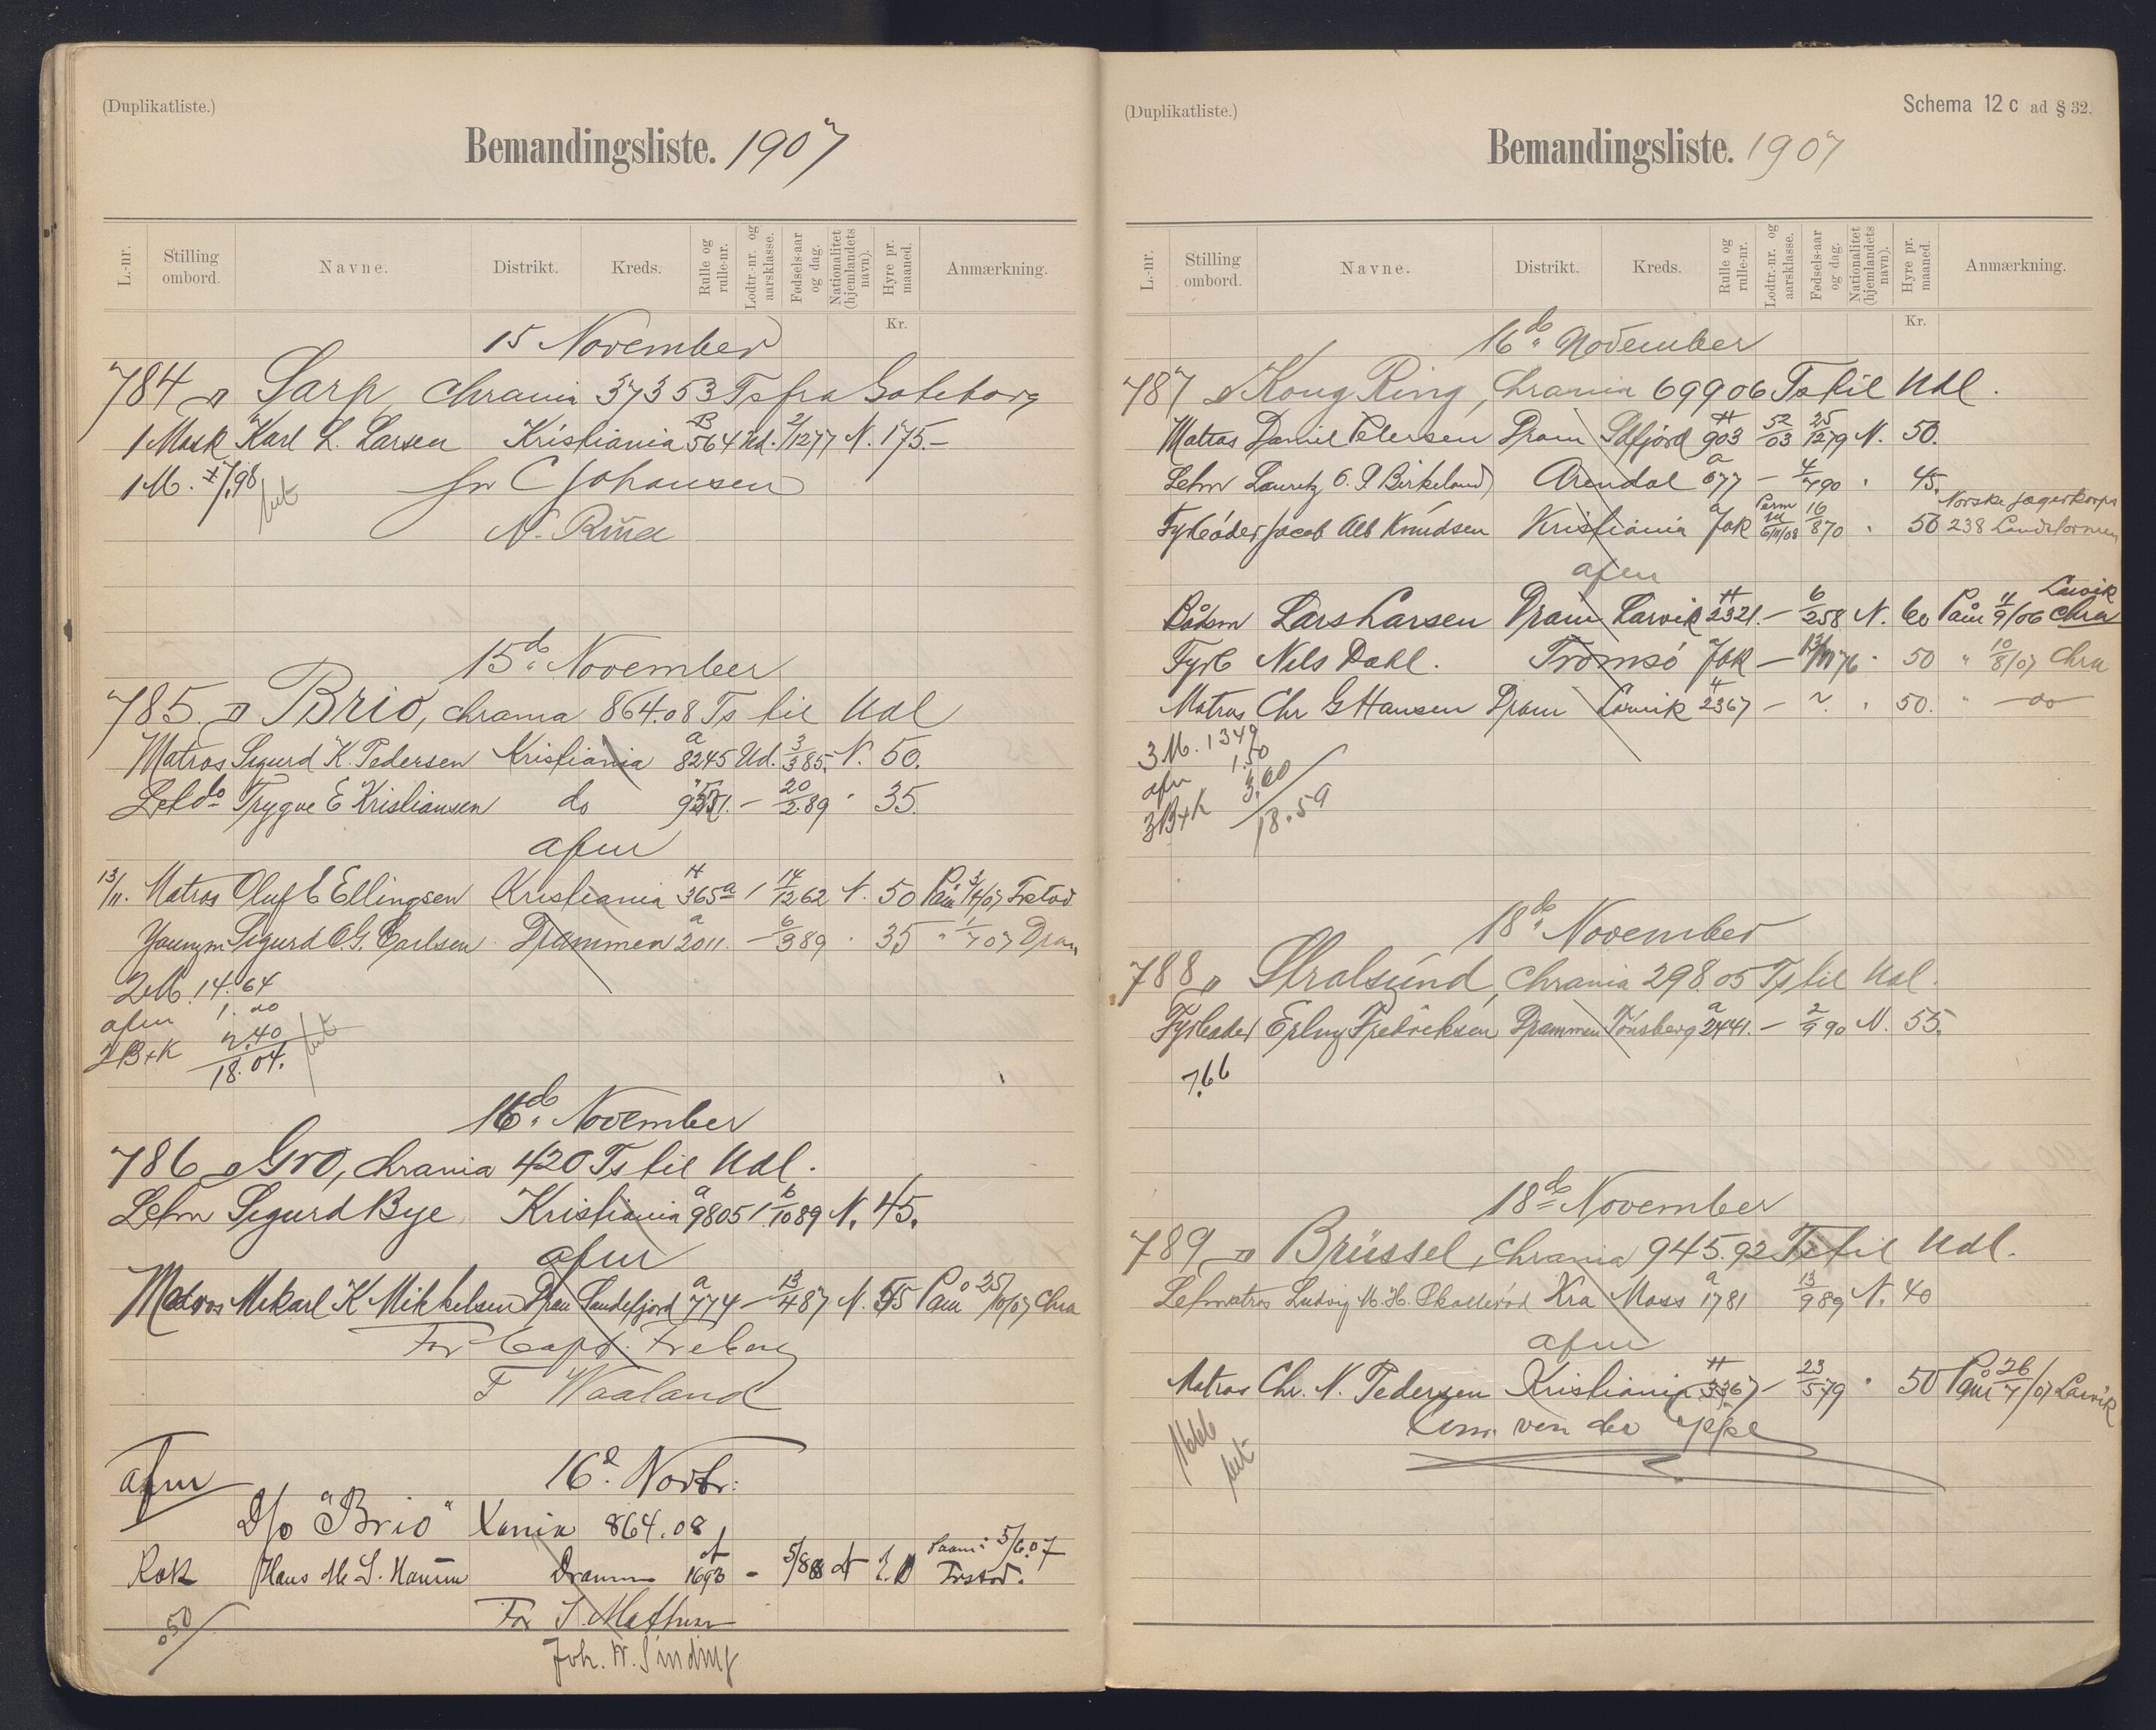 (Duplikatliste.)
Bemandingsliste. 1907
L.-nr. Stilling ombord. Navne. Distrikt. Kreds. Rulle og rulle-nr. Lodtr.-nr. og aarsklasse. Fødsels-aar og dag. Nationalitet (hjemlandets navn). Hyre pr. maaned. Anmærkning.
Kr.
15 November
784 D Sarp, Chrania 37353 Ts fra Goteborg
1 Mask Karl L. Larsen Kristiania B 564 Ud. 2/12 77 N. 175.-
1 M. 7.98
for C Johansen
N.
15de November
785. D Brio, Chrania 864.08 Ts til Udl
Matros Sigurd K. Pedersen Kristiania a 8245 Ud. 3/3 85. N. 50.
Letm do Trygve E Kristiansen do - 20/2 89 " 35.
afm
13/11. Matros Oluf E Ellingsen Kristiania H 365a 1 14/12 62 N. 50 Paam
Youngm Sigurd O.G. Carlsen Drammen a 2011. - 6/9 89 " 35 " 1/7 07 Dram
2 M. 14.64
afm 1.20
2 B+K 2.40
18.04.
16de November
786 D Gro, Chrania 420 Ts til Udl.
Letm Sigurd Bye Kristiania a 9805 1 6/10 89 N. 45.
afm
Matros Mikael K Mikkelsen Dram Sandefjord a 774 - 13/4 87 N. 55 Paam 25/10/07 Chra
For Capt. Freberg
F Waaland
afm 16d. Novbr:
D/o "Brio" Xania 864.08
Kok Hans M. L. Hansen Dramm 1693 - 5/8 Paam: 5/6.07
For J. Mathisen
.50
Joh. W. Sinding
(Duplikatliste.) Schema 12 c ad § 32.
Bemandingsliste. 1907
L.-nr. Stilling ombord. Navne. Distrikt. Kreds. Rulle og rulle-nr. Lodtr.-nr. og aarsklasse. Fødsels-aar og dag. Nationalitet (hjemlandets navn). Hyre pr. maaned. Anmærkning.
Kr.
16de November
787 D Kong Ring, Chrania 699 06 Ts til Udl.
Matros Daniel Petersen Dram Sdfjord H 903 52/03 25/12 79 N. 50.
Letm Lauritz O. P. Birkeland Arendal a 677 - 4/7 90 " 45.
Norske Jægerkorps
Fyrbøder Jacob Alb Knudsen Kristiania JoR 6/11/08 16/8 70 " 50 238 Landstormen
afm
Larvik
Bådsm Lars Larsen Dram Larvik H 2321. - 6/2 58 N. 60 Paam 11/9/06 Chra
Fyrb Nils Dahl. Tromsö JoR - 13/11 76 " 50 " 10/8/07 Chra
Matros Chr G Hansen Dram Larvik H 2367 - ~ " 50. " do
3 M. 13 49
afm 1.50
3 B+K 3.60
18.59
18de November
788 D Stralsund, Chrania 298.05 Ts til Udl.
Fyrbøder Erling Fredricksen Drammen Tönsberg a 2441. - 2/9 90 N. 55.
7.66
18de November
789 D Brüssel, Chrania 945.92 Ts til Udl.
Letmatros Ludvig M. H. Skallerød Kra Moss a 1781 13/9 89 N. 40
afm
Matros Chr. N. Pedersen Kristiania H 3367 - 23/5 79 " 50 Paam 26/7/07 Larvik
von der